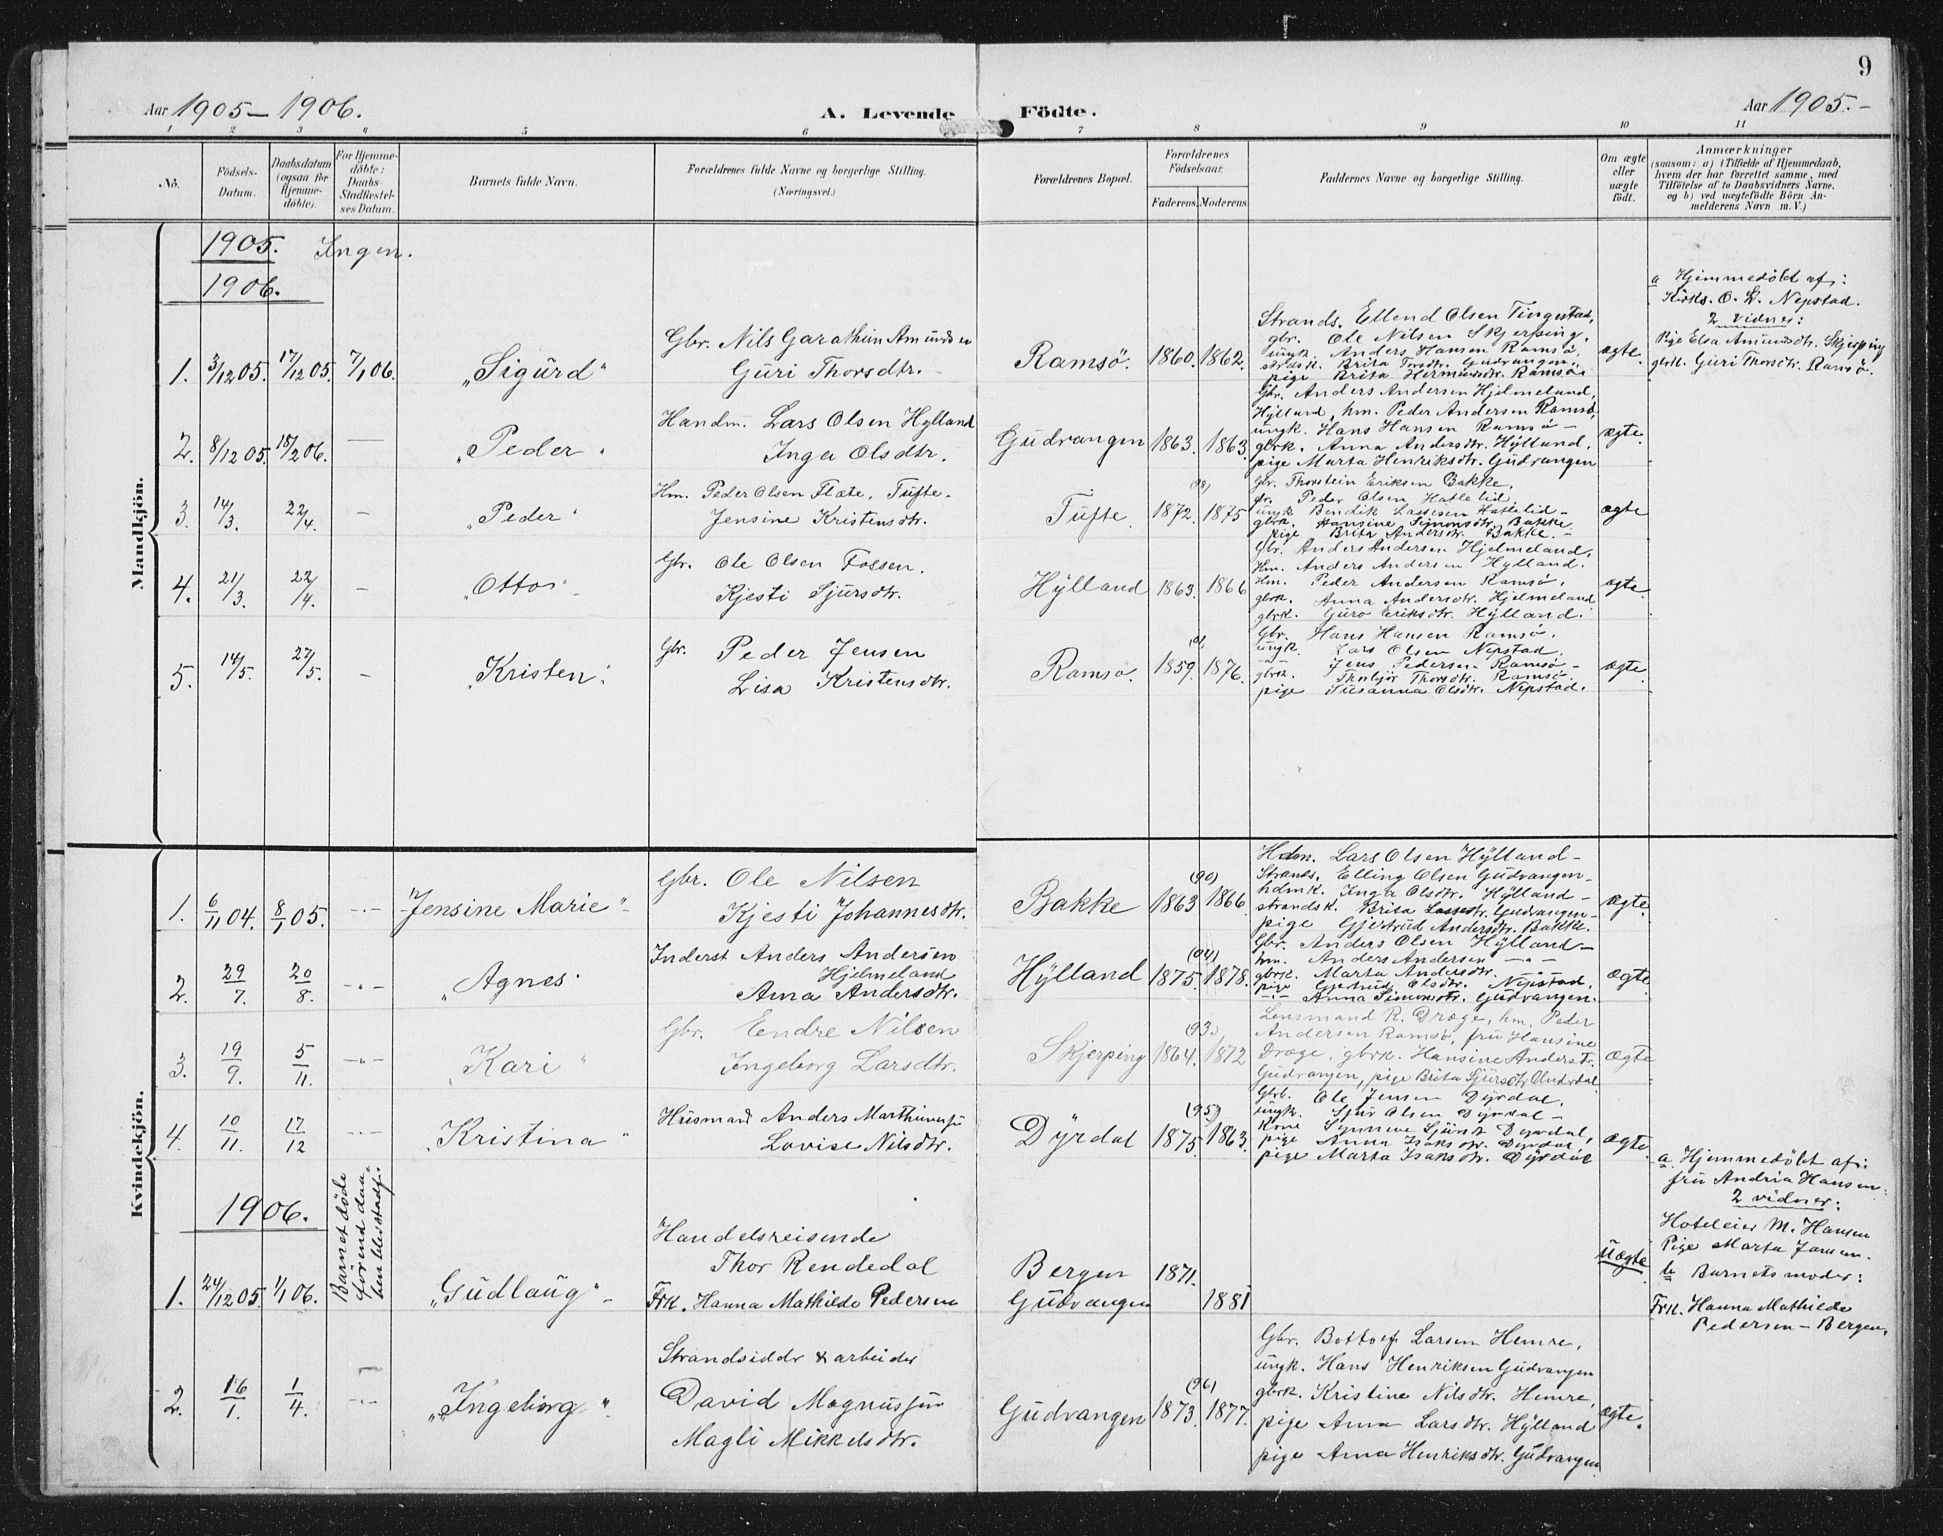 9
Aar 1905 - 1906.
A. Levende Födte.
Aar 1905. -
1 2 3 4 5 6 7 8 9 10 11
No.
Födsels-Datum.
Daabsdatum (ogsaa for Hjemme-döbte).
For Hjemme-döbte: Daabs-Stadfæstel-ses Datum.
Barnets fulde Navn.
Forældrenes fulde Navne og borgerlige Stilling. (Næringsvei.)
Forældrenes Bopæl.
Forældrenes Födselsaar.
Faderens. Moderens.
Faddernes Navne og borgerlige Stilling.
Om ægte eller uægte født.
Anmærkninger
(saasom: a) i Tilfælde af Hjemmedaab,
hvem der har forrettet samme, med
Tilföielse af to Daabsvidners Navne,
og b) ved uægtefödte Börn An-
melderens Navn m. V.)
Mandkjön.
1905. Ingen.
1906.
1. 3/12 05. 17/12 05. 7/1 06. "Sigurd"
Gbr. Nils Garathun Amundsen
Guri Thorsdtr.
Ramsø. 1860. 1862.
Strands. Ellend Olsen Tingestad,
gbr. Ole Nilsen Skjerping.
ungk. Anders Hansen Ramsø.
strdsk. Brita Torsdtr. Gudvangen.
pige Brita Hermundsdtr. Ramsø.
ægte.
a Hjemmedøbt af:
Kirks. O. L. Nepstad.
2 vidner:
Pige Elsa Amundsdtr. Skjerping
gbrk. Guri Thorsdtr. Ramsø.
2. 8/12 05. 18/2 06. "Peder"
Handm. Lars Olsen Hylland
Inga Olsdtr.
Gudvangen 1863. 1863.
Gbr. Anders Andersen Hjelmeland,
Hylland, hm. Peder Andersen Ramsø,
ungk. Hans Hansen Ramsø -
gbrk. Anna Andersdtr. Hylland,
pige Marta Henriksdtr. Gudvangen
ægte.
3. 14/3. 22/4. - "Peder"
Hm. Peder Olsen Flate, Tufte.
Jensine Kristensdtr.
Tufte. 1872. (98) 1875
Gbr. Thorstein Eriksen Bakke,
gr. Peder Olsen Hatlelid,
ungk. Bendik Lassesen Hatlelid -
gbrk. Hansine Simonsdtr. Bakke.
pige Brita Andersdtr. Bakke. -
ægte
4. 21/3. 22/4. - "Otto"
Gbr. Ole Olsen Fossen.
Kjesti Sjursdtr.
Hylland 1863. 1866
Gbr. Anders Andersen Hjelmeland,
Hm. Anders Andersen Hylland.
Hm. Peder Andersen Ramsø.
gbrk. Anna Andersdtr. Hjelmeland
gbrk. Guro Eriksdtr. Hylland.
ægte.
5. 14/5. 27/5. - "Kristen"
Gbr. Peder Jensen
Lisa Kristensdtr.
Ramsø. 1859. 1876.
Gbr. Hans Hansen Ramsø.
ungk. Lars Olsen Nepstad.
Jens Pedersen Ramsø -
gbrk. Thorbjør Thorsdtr. Ramsø.
pige Susanna Olsdtr. Nepstad.
ægte.
Kvindekjön.
1. 6/11 04. 8/1 05. -"- "Jensine Marie"
Gbr. Ole Nilsen
Kjesti Johannesdtr.
Bakke 1863 (90) 1866.
Hdm. Lars Olsen Hylland -
Strands. Elling Olsen Gudvangen -
hdmk. Inga Olsdtr. Hylland -
strandsk. Brita Lassedtr. Gudvangen -
pige Gjertrud Andersdtr. Bakke.
ægte.
2. 29/7. 20/8. -"- "Agnes"
Inderst Anders Andersen
Hjelmeland
Anna Andersdtr.
Hylland 1875. (04) 1878.
Gbr. Anders Olsen Hylland -
hm. Anders Andersen -"-
gbrk. Marta Andersdtr. -"-
pige Gjertrud Olsdtr. Nepstad,
-"- Anna Simonsdtr. Gudvangen.
ægte.
3. 19/9. 5/11. -"- "Kari"
Gbr. Eendre Nilsen
Ingeborg Larsdtr.
Skjerping 1864. (93) 1872
Lensmand R. Dræge, hm. Peder
Andersen Ramsø, fru Hansine
Dræge, gbrk. Hansine Andersdtr.
Gudvangen, pige Brita Sjursdtr.
ægte
4. 10/11. 17/12 -"- "Kristina"
Husmand Anders Marthinusen
Lovise Nilsdtr.
Dyrdal 1875. (95) 1863.
Gbr. Ole Jensen Dyrdal,
ungk. Sjur Olsen Dyrdal -
Kone Synneve Sjursdtr Dyrdal,
pige Anna Isaksdtr. Dyrdal
pige Marta Isaksdtr. Dyrdal
ægte.
1906.
1. 24/12 05. 1/1 06.
Barnet døde
forend daa-
ben blev stadf.
"Gudlaug"
Handelsreisende
Thor Rendedal
Frk. Hanna Mathilde Pedersen
Bergen 1871.
Gudvangen 1881
Uægte
a Hjemmedøbt af:
fru Andria Hansen.
2 vidner:
Hoteleier M. Hansen
Pige Marta Jansen.
b Barnets moder:
Frk. Hanna Mathilde
Pedersen - Bergen.
2. 16/1. 1/4. -"- "Ingeborg"
Strandsidder & arbeider
David Magnussen
Magli Mikkelsdtr.
Gudvangen 1873. (96) 1877.
Gbr. Bottolf Larsen Hemre,
ungk. Hans Henriksen Gudvangen
gbrk. Kristine Nilsdtr. Hemre,
pige Anna Larsdtr. Hylland
pige Anna Henriksdtr. Gudvangen
ægte.